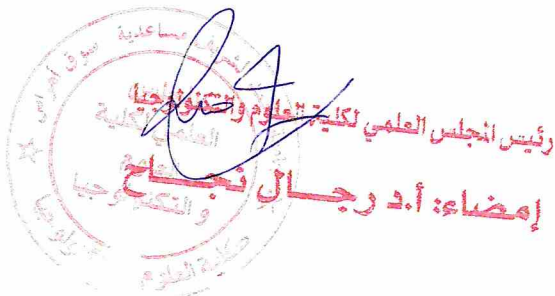 رئيس المجلس العلمي لكلية العلوم والتكنولوجيا
إمضاء: أ.د رجـــال نجـــاح
الشريف مساعدية سوق أهراس
العلمي لكلية
و التكنولوجيا
كلية العلوم